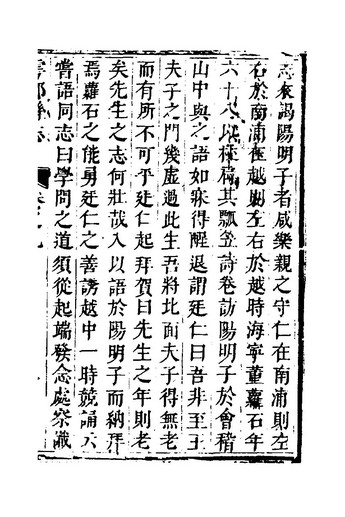 志來謁陽明子者咸樂親之守仁在南浦則左
右於南浦在越則左右於越時海寧董蘿石年
六十八以杖肩其瓢笠詩卷訪陽明子於會稽
山中與之語如寐得醒退謂廷仁曰吾非至王
夫子之門幾虛過此生吾將北面夫子得無老
而有所不可乎廷仁起拜賀曰先生之年則老
矣先生之志何壯哉入以語於陽明子而納拜
焉蘿石之能勇廷仁之善誘越中一時競誦六
嘗語同志曰學問之道須從起端發念處察識
雩都縣志